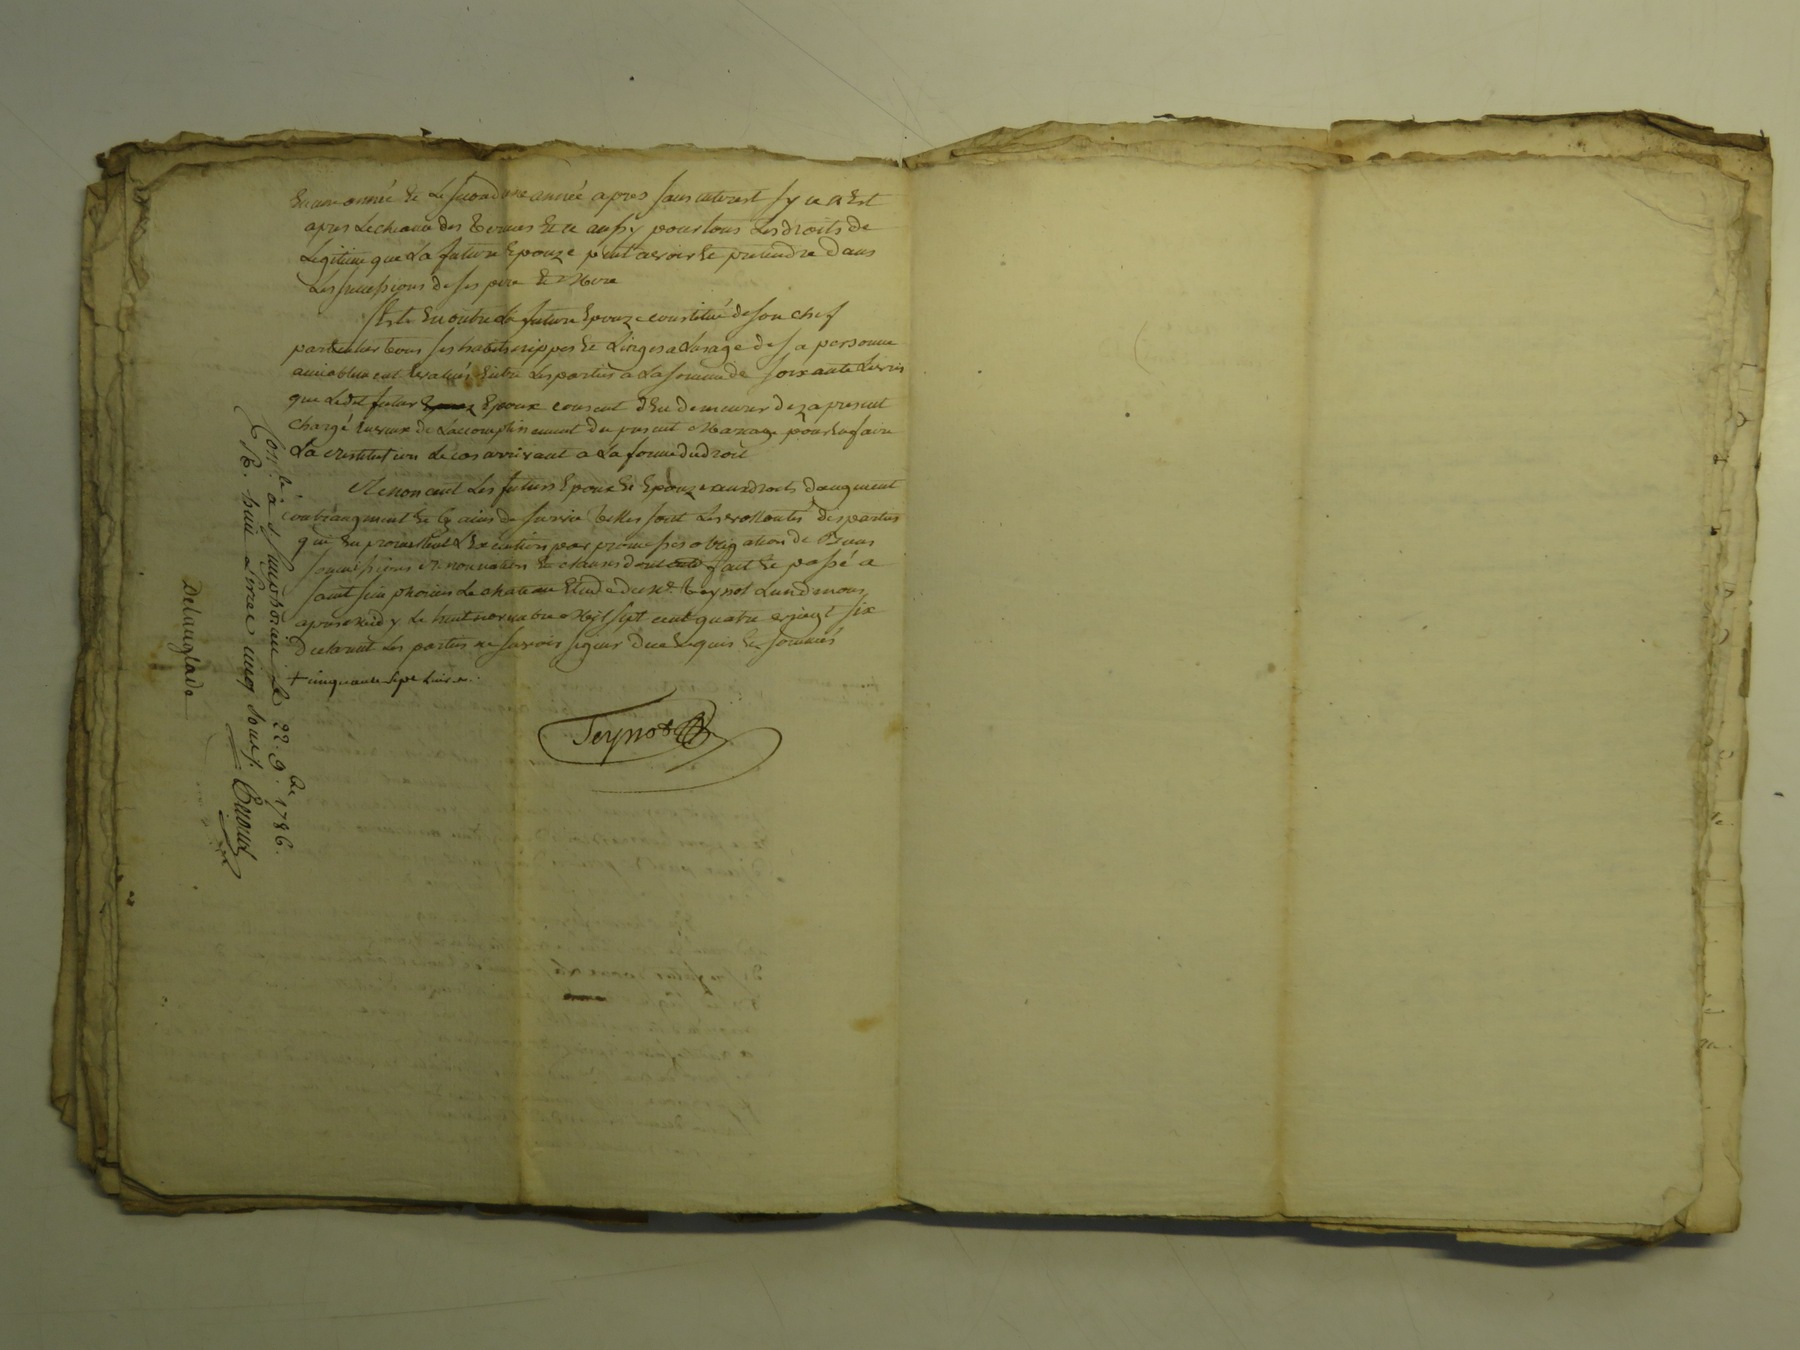 En une année Et Le second une année apres sans interest sy ce n'Est
apres Lecheance des termes Et ce aussy pour tous Les droits de
Legitime que La future Epouze peut avoir Et pretendre dans
Les successions de ses pere Et Mere
S'est En outre La future Epouze constitué de son chef
particulier tous ses habits nippes Et Linges a Lusage de sa personne
amiablement Evalués Entre Les parties a La somme de soixante Livres
que Ledit futur Epoux consent d'En demeurer dez a present
chargé Envers de Laccomplissement du present Mariage pour En faire
La restitution Le cas arrivant a La forme du droit
Renoncent Les futurs Epoux Et Epouze aux droits daugment
contraugment Et Gains de survie telles sont Les vollontés des parties
que En promettent L'Execution par promesses obligation de Biens
soumissions Renonciation Et clauses fait Et passé a
saint simphorien Le chateau Etude du Ne. Teynot Lundenous
apres midy Le huit novembre Mil sept cent quatre vingt six
declarant Les parties ne savoir signer de ce Enquis Et sommés
+ cinquante sept Livres
Teynot
Conlé. à St. Simphorien le 22. 9bre 1786.
R. huit Livres cinq sous.
Delanglade